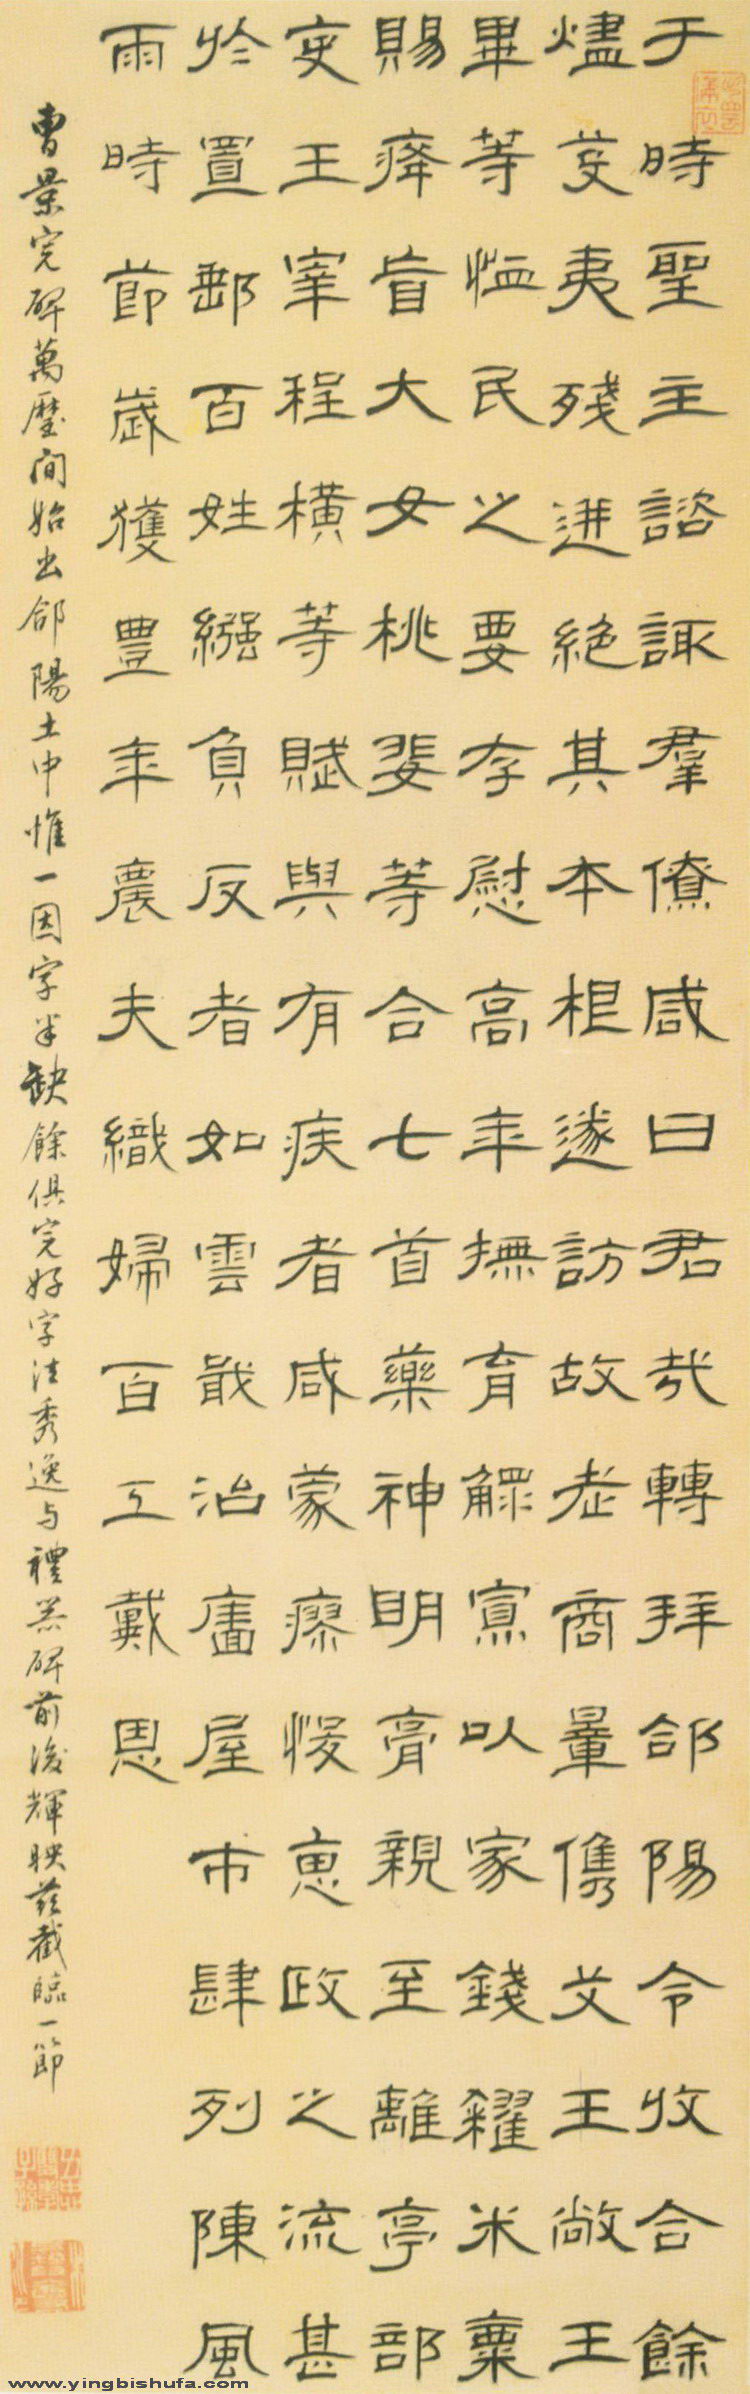 于時聖主諮諏羣僚咸曰君哉轉拜郃陽令收合餘
燼芟夷殘迸絕其本根遂訪故老商量儁艾王敞王
畢等恤民之要存慰高年撫育鰥寡以家錢糴米粟
賜癃盲大女桃斐等合七首藥神明膏親至離亭部
吏王宰程橫等賦與有疾者咸蒙瘳悛惠政之流甚
於置郵百姓繈負反者如雲戢治廧屋市肆列陳風
雨時節歲獲豐年農夫織婦百工戴恩
曹景完碑萬曆間始出郃陽土中惟一因字半缺餘俱完好字法秀逸与禮器碑前後輝映茲截臨一節
www.yingbishufa.com